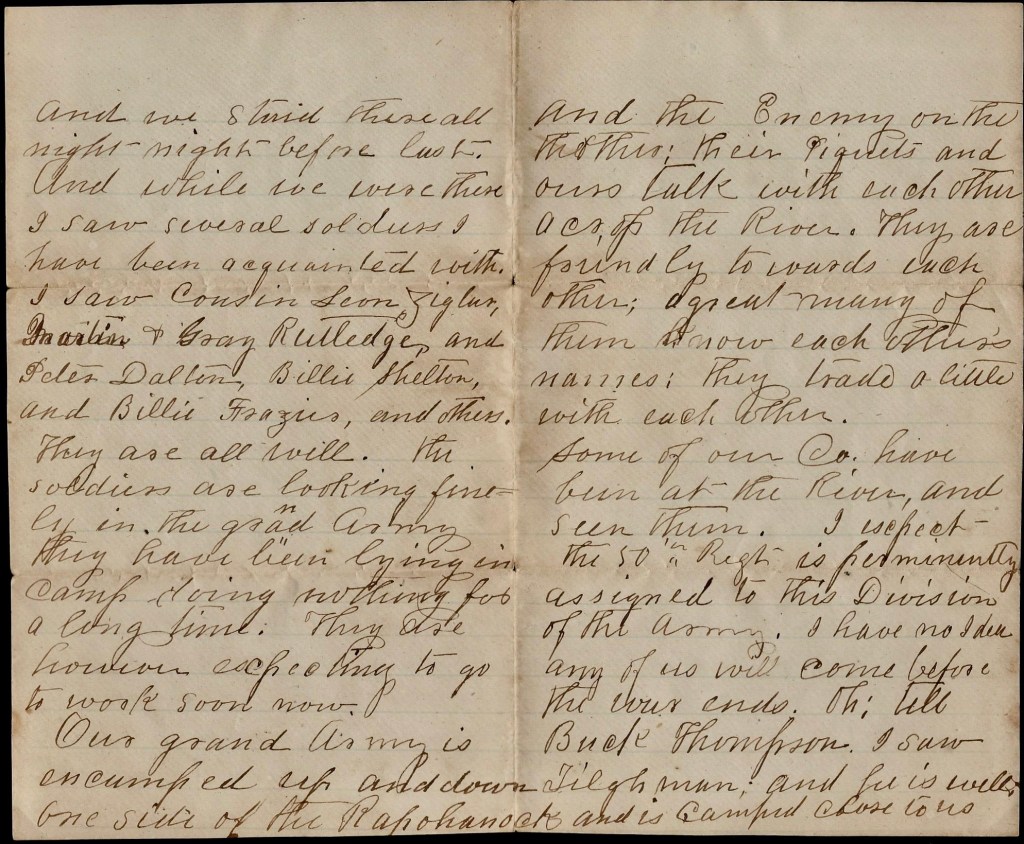 and we staid there all
night night before last.
And while we were there
I saw several soldiers I
have been acquainted with.
I saw Cousin Leon Ziglar,
Martin & Gray Rutledge, and
Peter Dalton, Billie Shelton,
and Billie Frazier, and others.
They are all well. The
soldiers are looking fine-
ly in the grand Army
they have been lying in
camp doing nothing for
a long time. They are
however expecting to go
to work soon now.
Our grand Army is
encamped up and down
one side of the Rapohanock
and the Enemy on the
the other; their Piquets and
ours talk with each other
across the River. They are
friendly towards each
other; a great many of
them know each other's
names; they trade a little
with each other.
Some of our Co. have
been at the River, and
seen them. I expect
the 50th Regt is perminently
assigned to this Division
of the Army. I have no Idea
any of us will come before
the war ends. Oh; tell
Buck Thompson. I saw
Tilghman; and he is well,
and is camped close to us